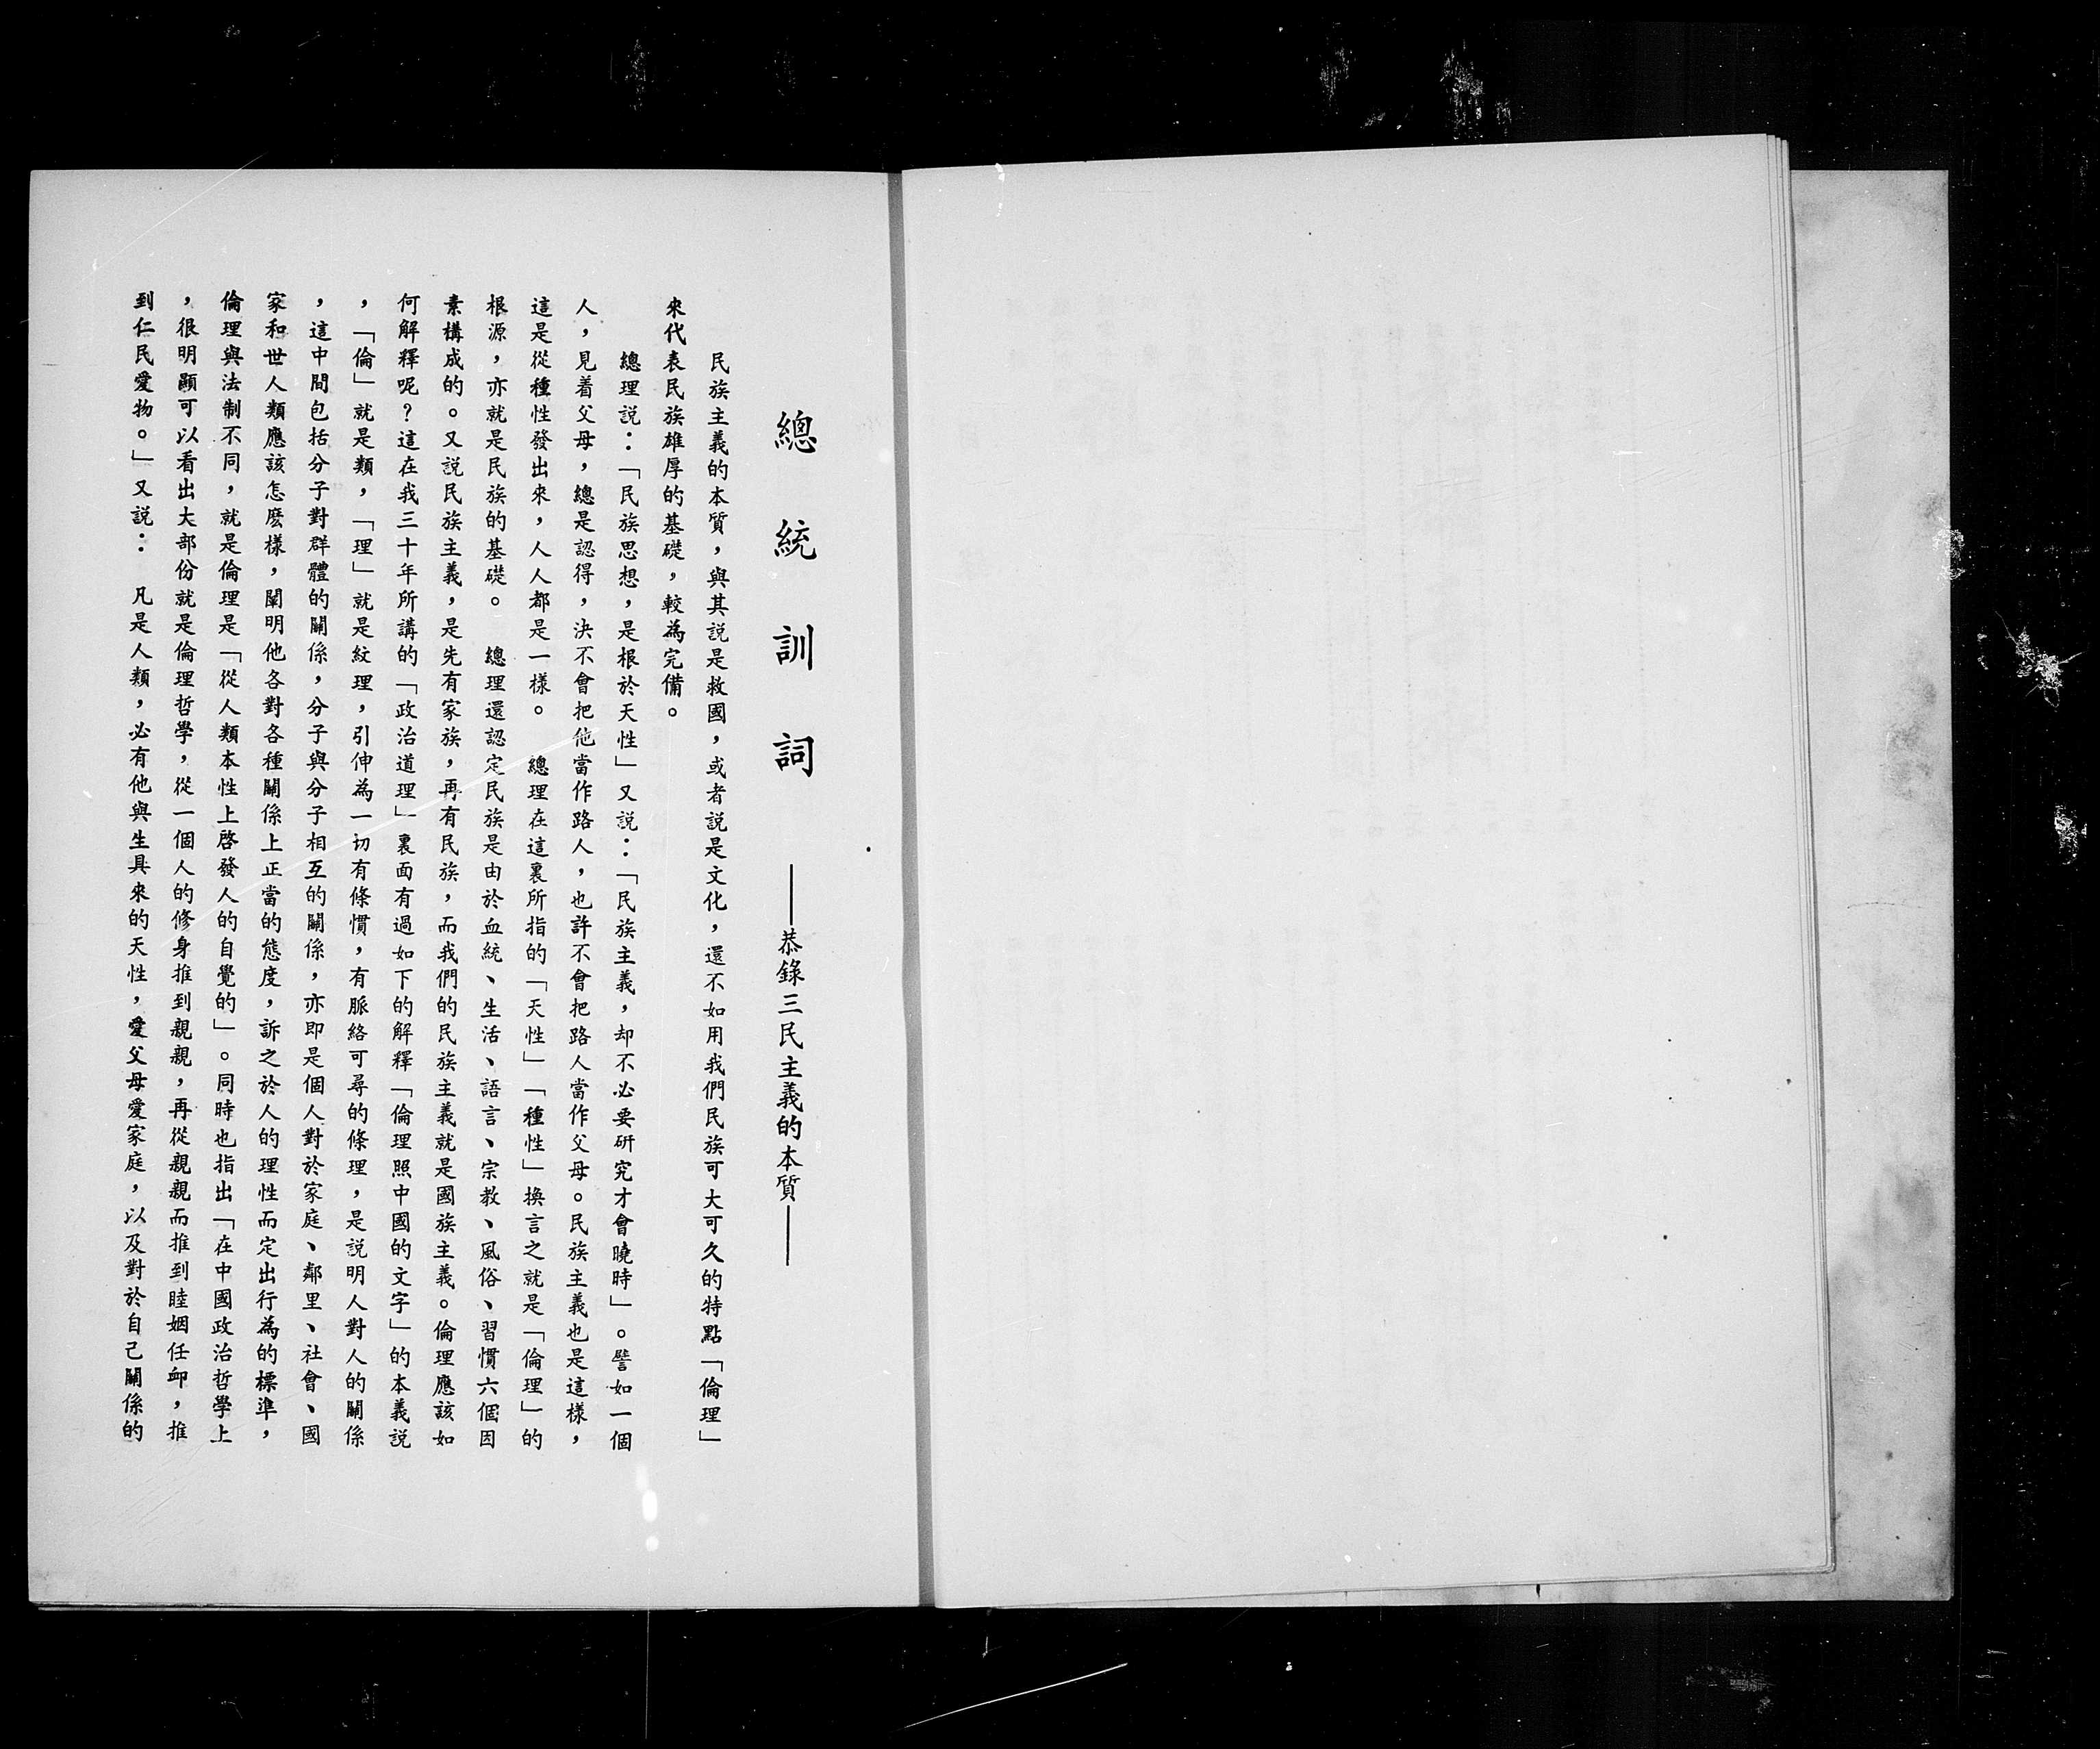 總統訓詞 ——恭錄三民主義的本質——
民族主義的本質，與其說是救國，或者說是文化，還不如用我們民族可大可久的特點「倫理」
來代表民族雄厚的基礎，較為完備。
總理說：「民族思想，是根於天性」又說：「民族主義，却不必要研究才會曉時」。譬如一個
人，見着父母，總是認得，決不會把他當作路人，也許不會把路人當作父母。民族主義也是這樣，
這是從種性發出來，人人都是一樣。　總理在這裏所指的「天性」「種性」換言之就是「倫理」的
根源，亦就是民族的基礎。　總理還認定民族是由於血統、生活、語言、宗教、風俗、習慣六個因
素構成的。又說民族主義，是先有家族，再有民族，而我們的民族主義就是國族主義。倫理應該如
何解釋呢？這在我三十年所講的「政治道理」裏面有過如下的解釋「倫理照中國的文字」的本義說
，「倫」就是類，「理」就是紋理，引伸為一切有條慣，有脈絡可尋的條理，是說明人對人的關係
，這中間包括分子對群體的關係，分子與分子相互的關係，亦即是個人對於家庭、鄰里、社會、國
家和世人類應該怎麽樣，闡明他各對各種關係上正當的態度，訴之於人的理性而定出行為的標準，
倫理與法制不同，就是倫理是「從人類本性上啓發人的自覺的」。同時也指出「在中國政治哲學上
，很明顯可以看出大部份就是倫理哲學，從一個人的修身推到親親，再從親親而推到睦姻任卹，推
到仁民愛物。」又說：　凡是人類，必有他與生具來的天性，愛父母愛家庭，以及對於自己關係的